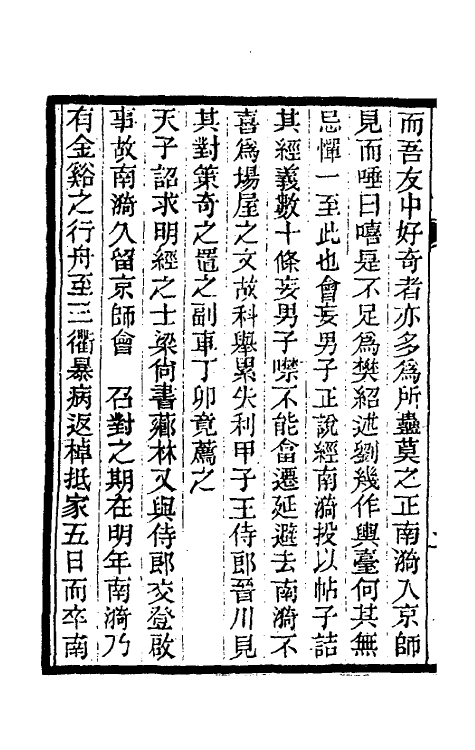 而吾友中好奇者亦多為所蠱莫之正南漪入京師
見而唾曰嘻是不足為樊紹述劉幾作輿臺何其無
忌憚一至此也會妄男子正說經南漪投以帖子詰
其經義數十條妄男子噤不能畣遷延避去南漪不
喜為場屋之文故科舉累失利甲子王侍郎晉川見
其對策奇之置之副車丁卯竟薦之
天子詔求明經之士梁尙書薌林又與侍郎交登啟
事故南漪久留京師會　召對之期在明年南漪乃
有金谿之行舟至三衢暴病返棹抵家五日而卒南